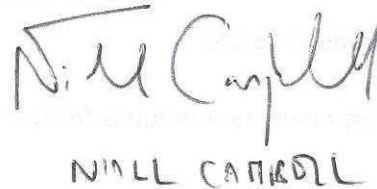 Niall Campbell
NIALL CAMPBELL